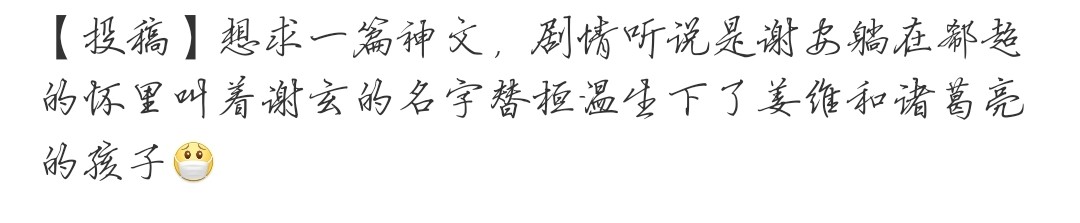 【投稿】想求一篇神文，剧情听说是谢安躺在郗超
的怀里叫着谢玄的名字替桓温生下了姜维和诸葛亮
的孩子😷